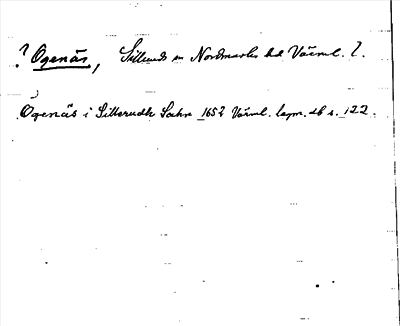 ? Ogenäs, Silleruds sn Nordmarks hd Värml. ?
Ogenäs i Sillerudh Sochn 1652 Värml. lagm. db s. 122.